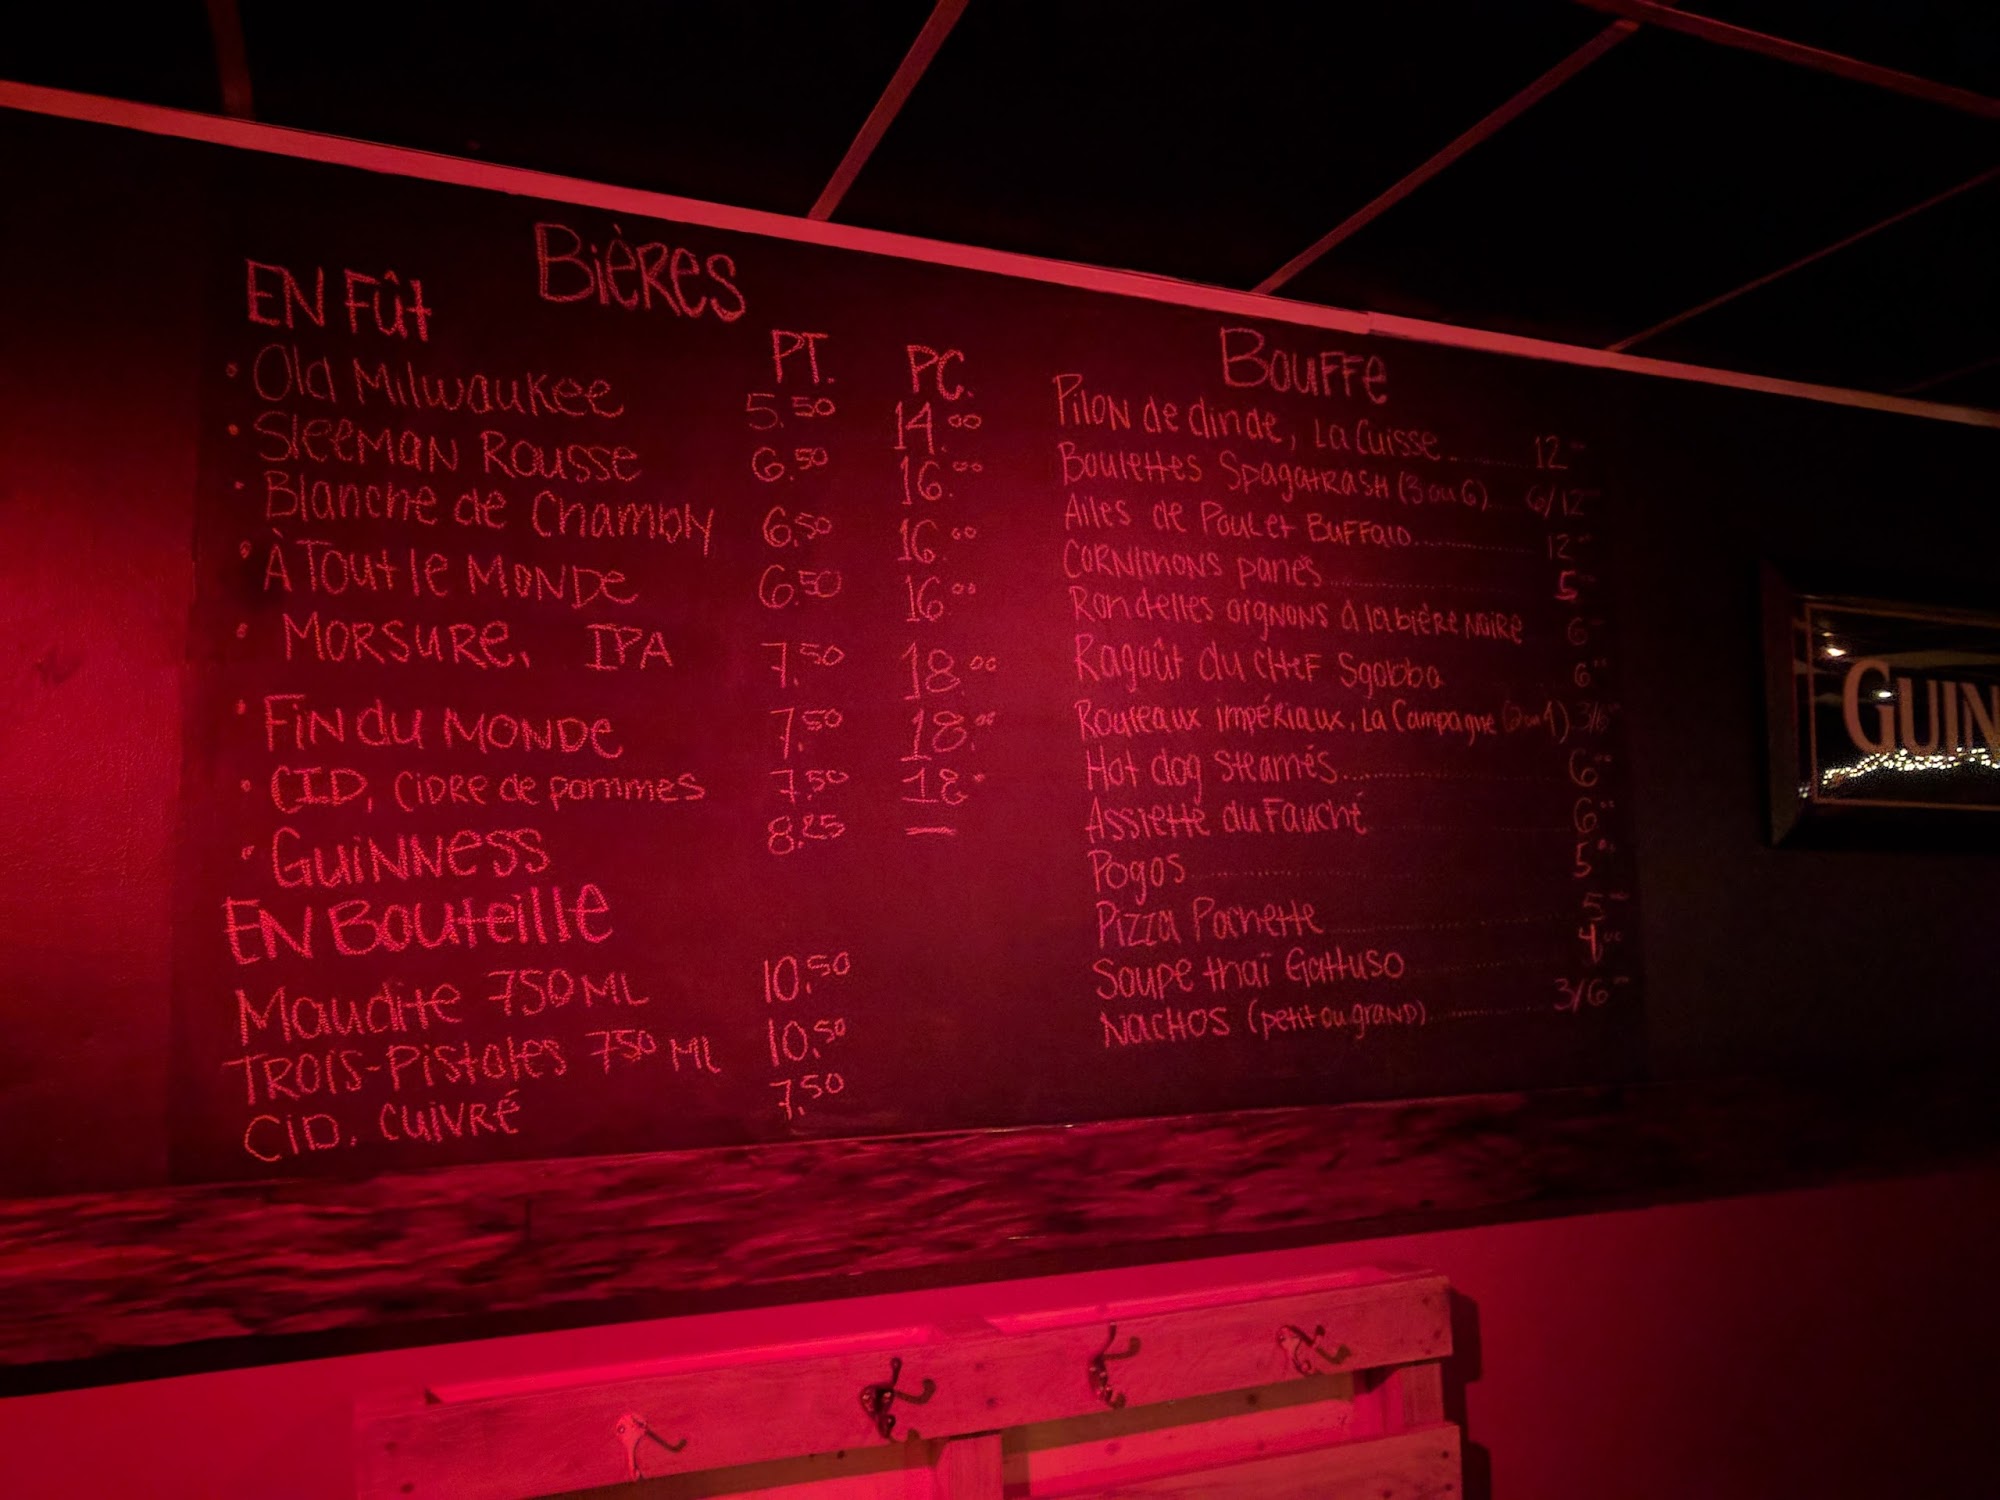 Bières
EN Fût PT. PC.
• Old Milwaukee 5.50 14.00
• Sleeman Rousse 6.50 16.00
• Blanche de Chambly 6.50 16.00
• À Tout le Monde 6.50 16.00
• Morsure, IPA 7.50 18.00
• Fin du Monde 7.50 18.00
• CID, Cidre de pommes 7.50 18.
• Guinness 8.25 —
EN Bouteille
Maudite 750 ML 10.50
Trois-Pistoles 750 ML 10.50
CID. Cuivré 7.50
Bouffe
Pilon de dinde, La Cuisse 12
Boulettes Spagatrash (3 ou 6) 6/12
Ailes de Poulet Buffalo 12
Cornichons panés 5
Rondelles oignons à la bière noire 6
Ragoût du chef Sgobba 6
Rouleaux impériaux, La Campagne (2 ou 4) 3/6
Hot dog steamés 6
Assiette du Fauché 6
Pogos 5
Pizza Pochette 5
Soupe thaï Gattuso 4
Nachos (petit ou grand) 3/6
GUIN